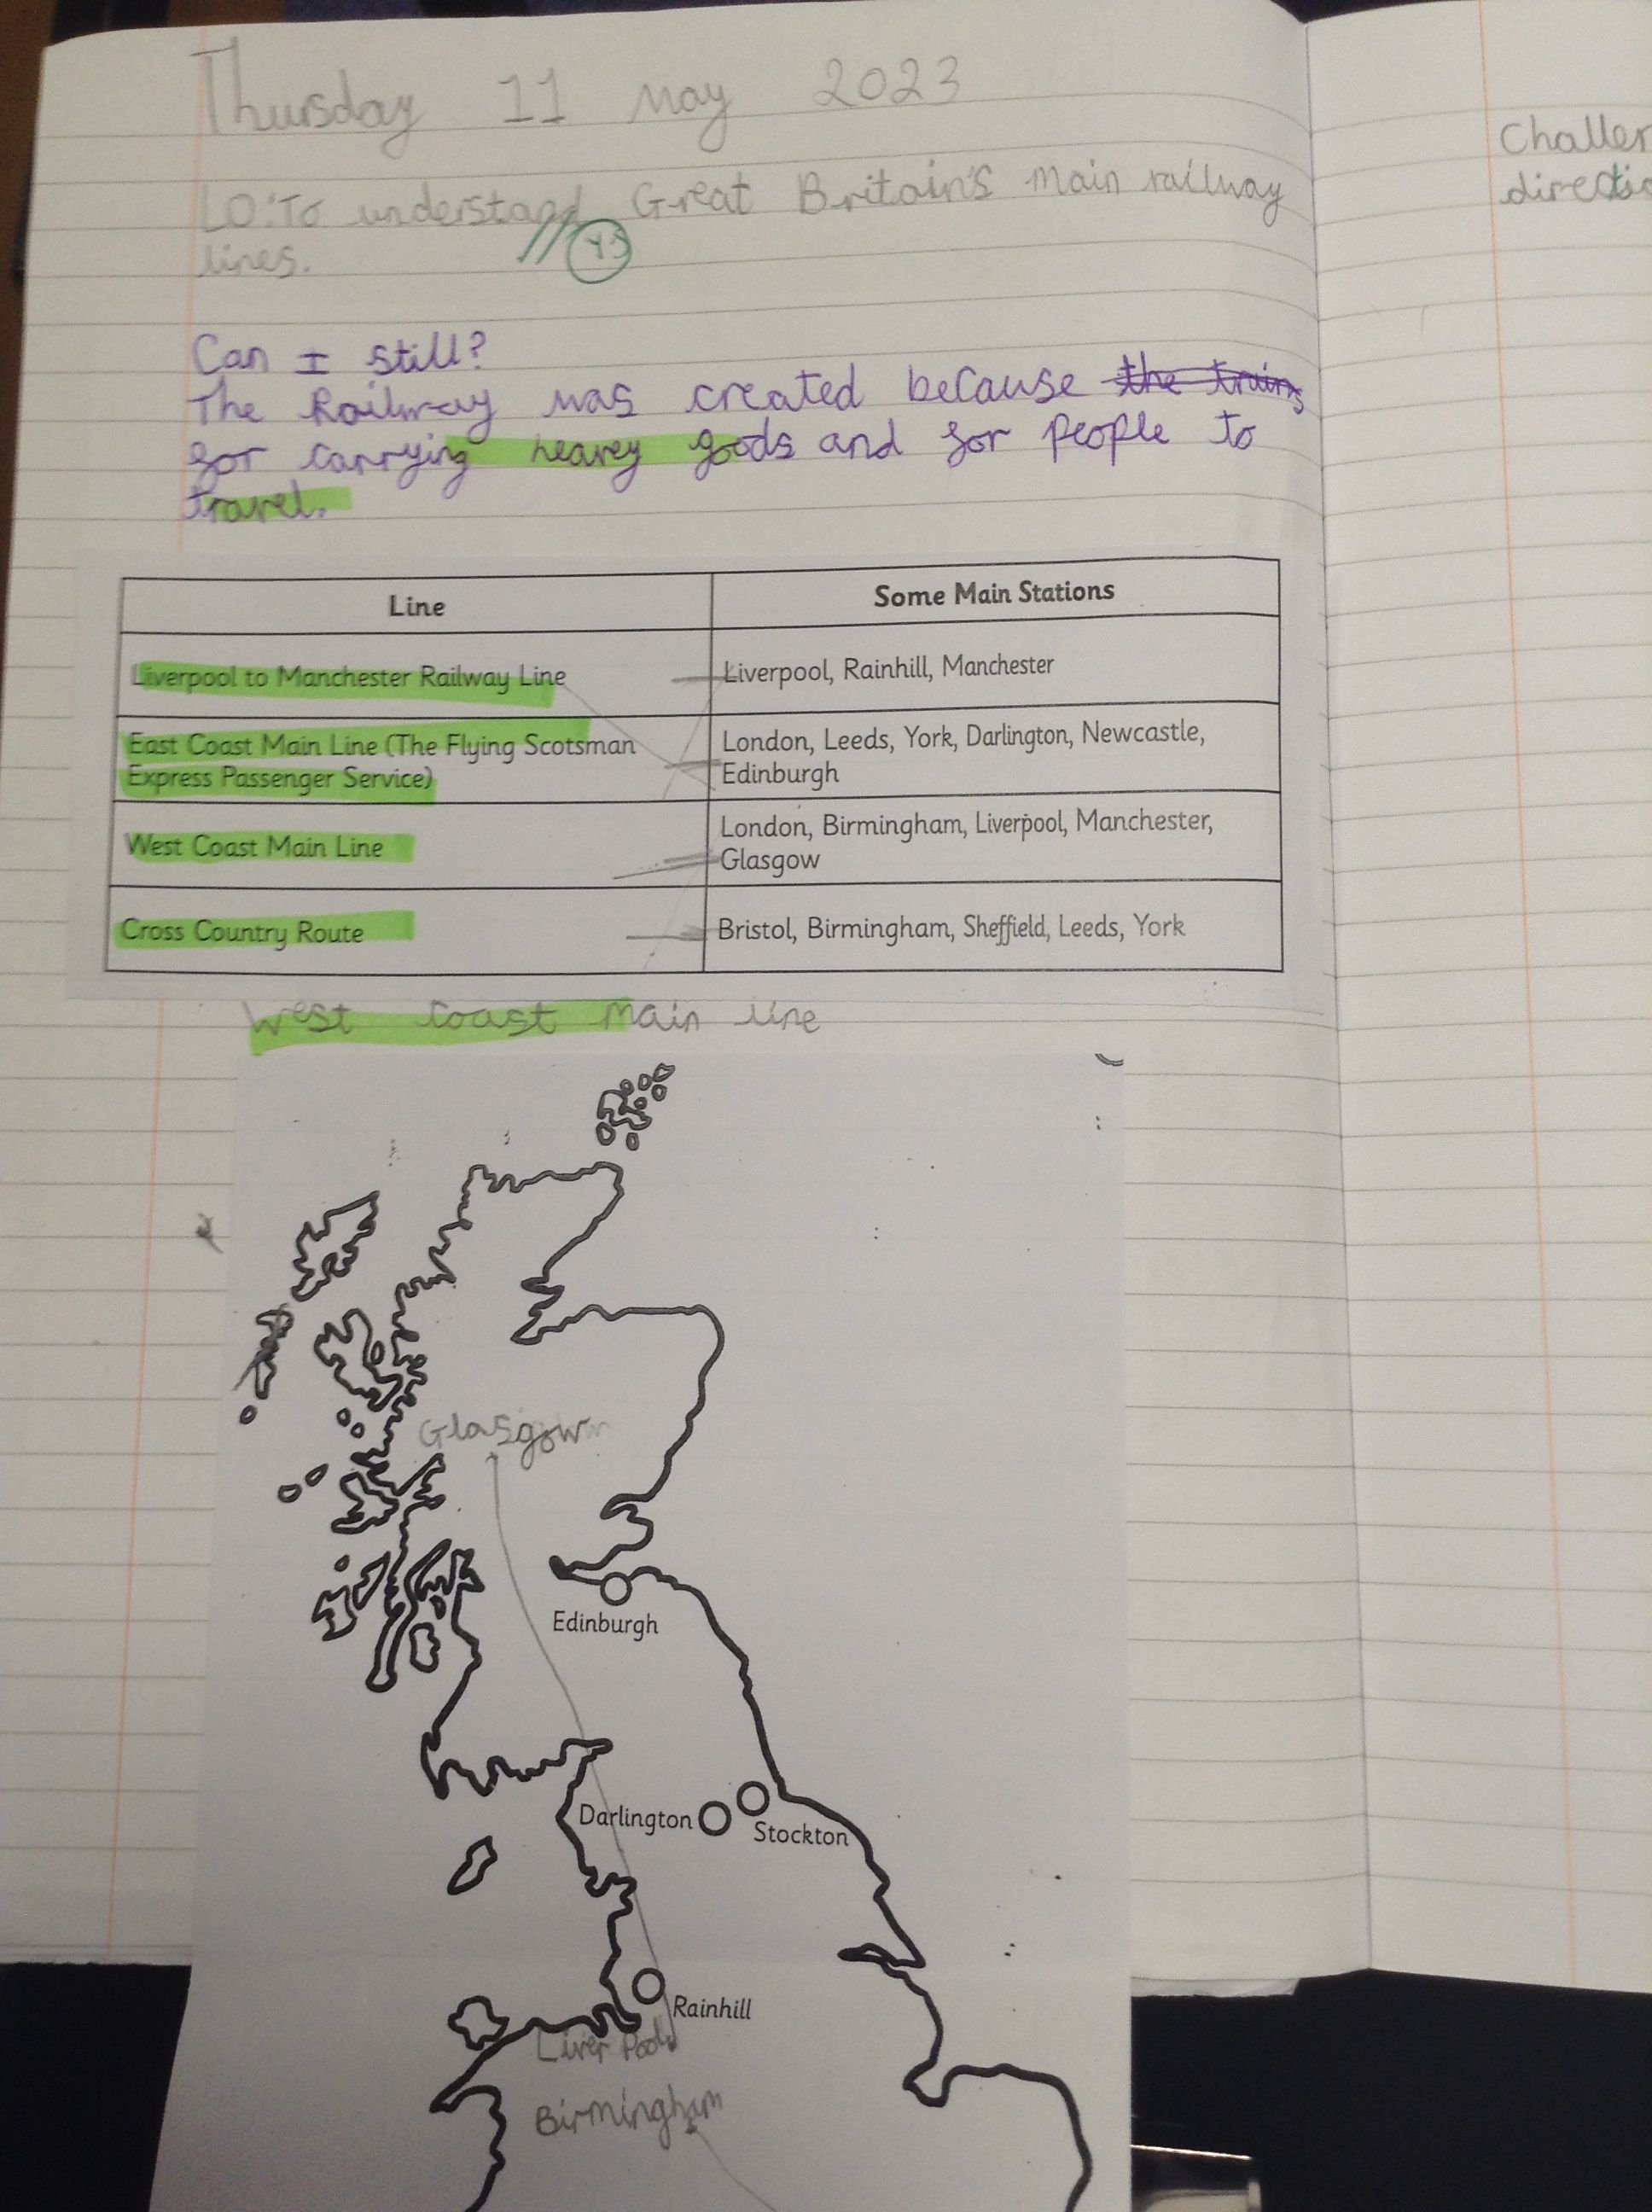 Thursday 11 May 2023
LO: To understand Great Britain's main railway
lines.
YS
Can I still?
The Railway was created because the trains
for carrying heavey goods and for people to
travel.
Line
Some Main Stations
Liverpool to Manchester Railway Line
Liverpool, Rainhill, Manchester
East Coast Main Line (The Flying Scotsman
Express Passenger Service)
London, Leeds, York, Darlington, Newcastle,
Edinburgh
West Coast Main Line
London, Birmingham, Liverpool, Manchester,
Glasgow
Cross Country Route
Bristol, Birmingham, Sheffield, Leeds, York
West coast main line
Glasgow
Edinburgh
Darlington
Stockton
Rainhill
Liver Pool
Birmingham
Challen
directio